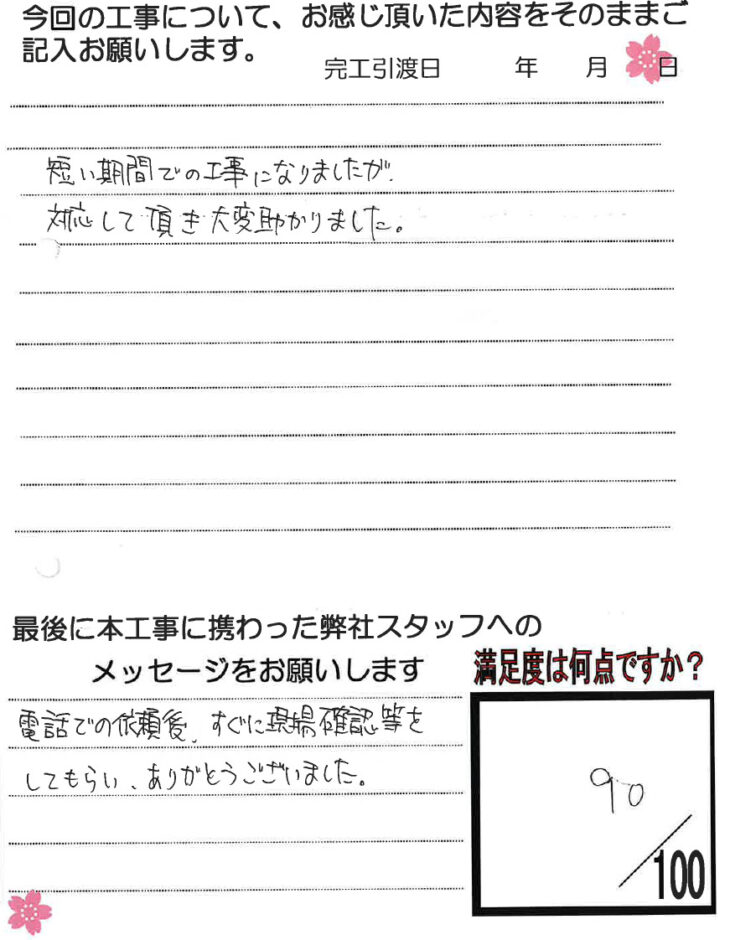 今回の工事について、お感じ頂いた内容をそのままご
記入お願いします。
完工引渡日 年 月 日
短い期間での工事になりましたが、
対応して頂き大変助かりました。
最後に本工事に携わった弊社スタッフへの
メッセージをお願いします
満足度は何点ですか？
電話での依頼後、すぐに現場確認等を
してもらい、ありがとうございました。
90
/100